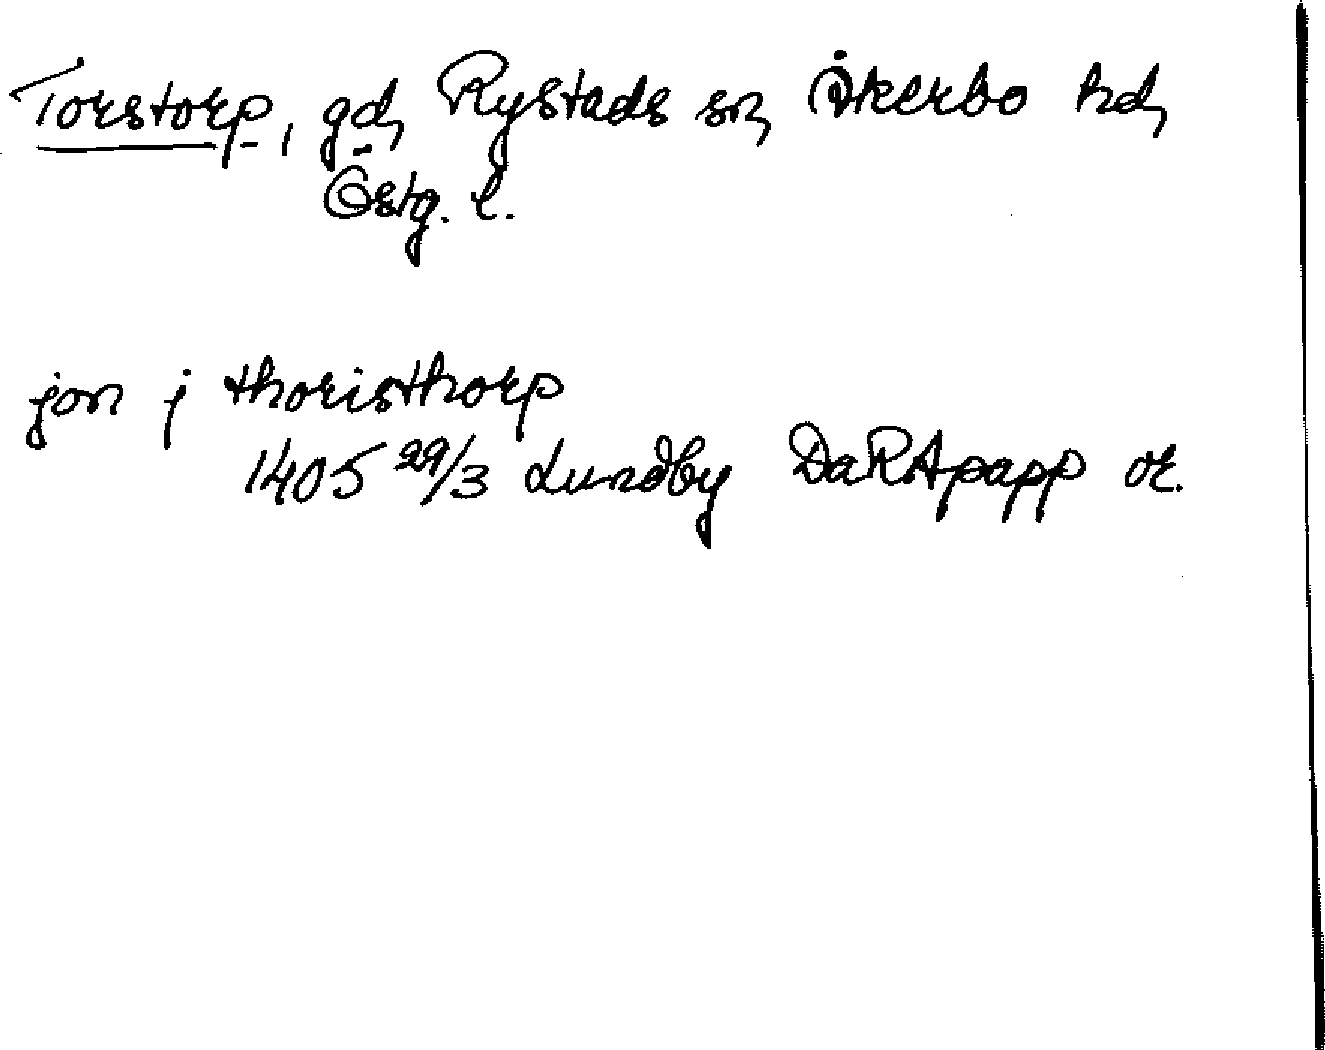 Torstorp, gd, Rystads sn, Åkerbo hd,
Östg. l.
jon j thoristhorp
1405 29/3 Lundby DaRApapp or.